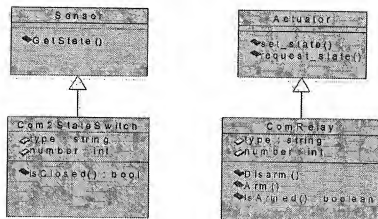 Sensor
GetState()
Com2StateSwitch
type : string
number : int
IsClosed() : bool
Actuator
set_state()
request_state()
ComRelay
type : string
number : int
Disarm()
Arm()
IsArmed() : boolean